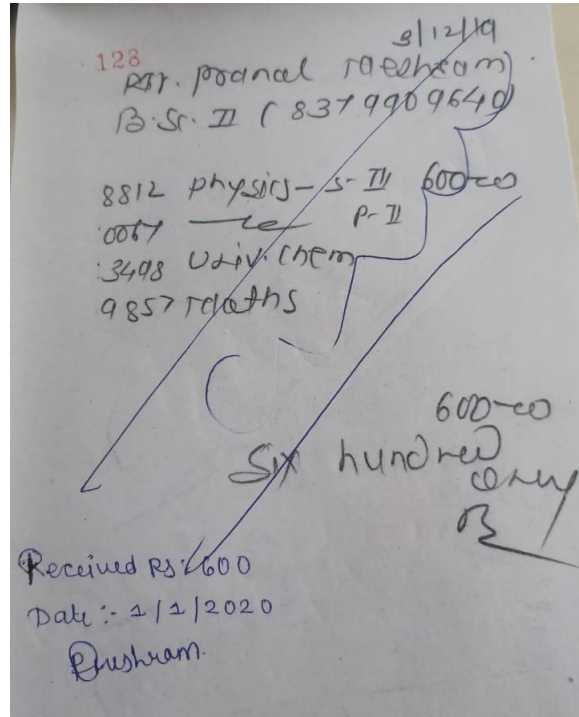 3/12/19
128
Mr. Pranal Meshram
B.Sc. II (8379909640)
8812 Physics - S-III 600-00
0067 P-II
3498 Univ. Chem
9857 Maths
600-00
Six hundred
only
Received Rs:- 600
Date :- 1/1/2020